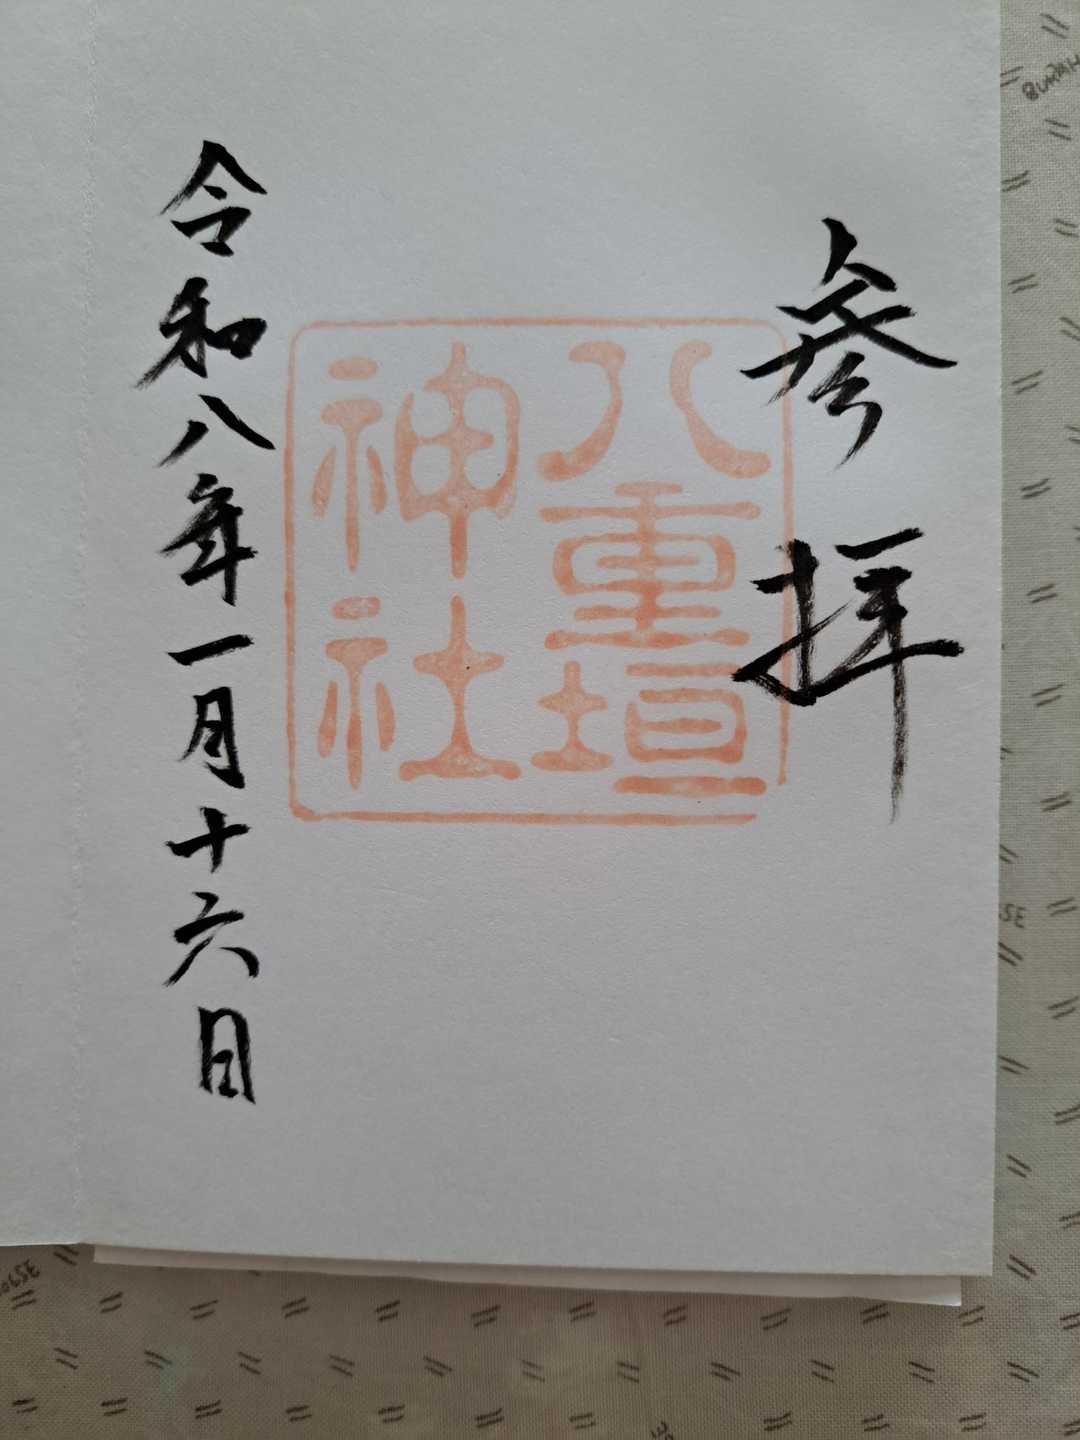 参拝
八重垣
神社
令和八年一月十六日